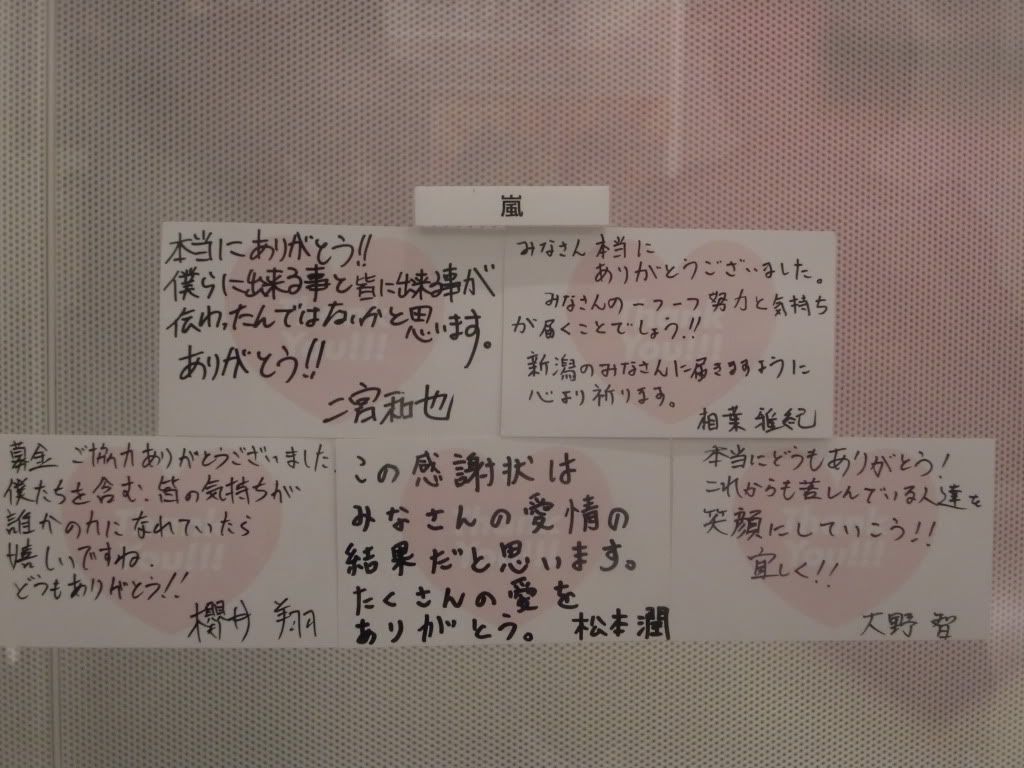 嵐
本当にありがとう!!
僕らに出来る事と皆に出来る事が
伝わったんではないかと思います。
ありがとう!!
二宮和也
みなさん本当に
ありがとうございました。
みなさんの一つ一つ努力と気持ち
が届くことでしょう!!
新潟のみなさんに届きますように
心より祈ります。
相葉雅紀
募金 ご協力ありがとうございました
僕たちを含む、皆の気持ちが
誰かの力になれていたら
嬉しいですね.
どうもありがとう!!
櫻井 翔
この感謝状は
みなさんの愛情の
結果だと思います。
たくさんの愛を
ありがとう。 松本潤
本当にどうもありがとう!
これからも苦しんでいる人達を
笑顔にしていこう!!
宜しく!!
大野 智
Thank
You!!
Thank
You!!
Thank
You!!